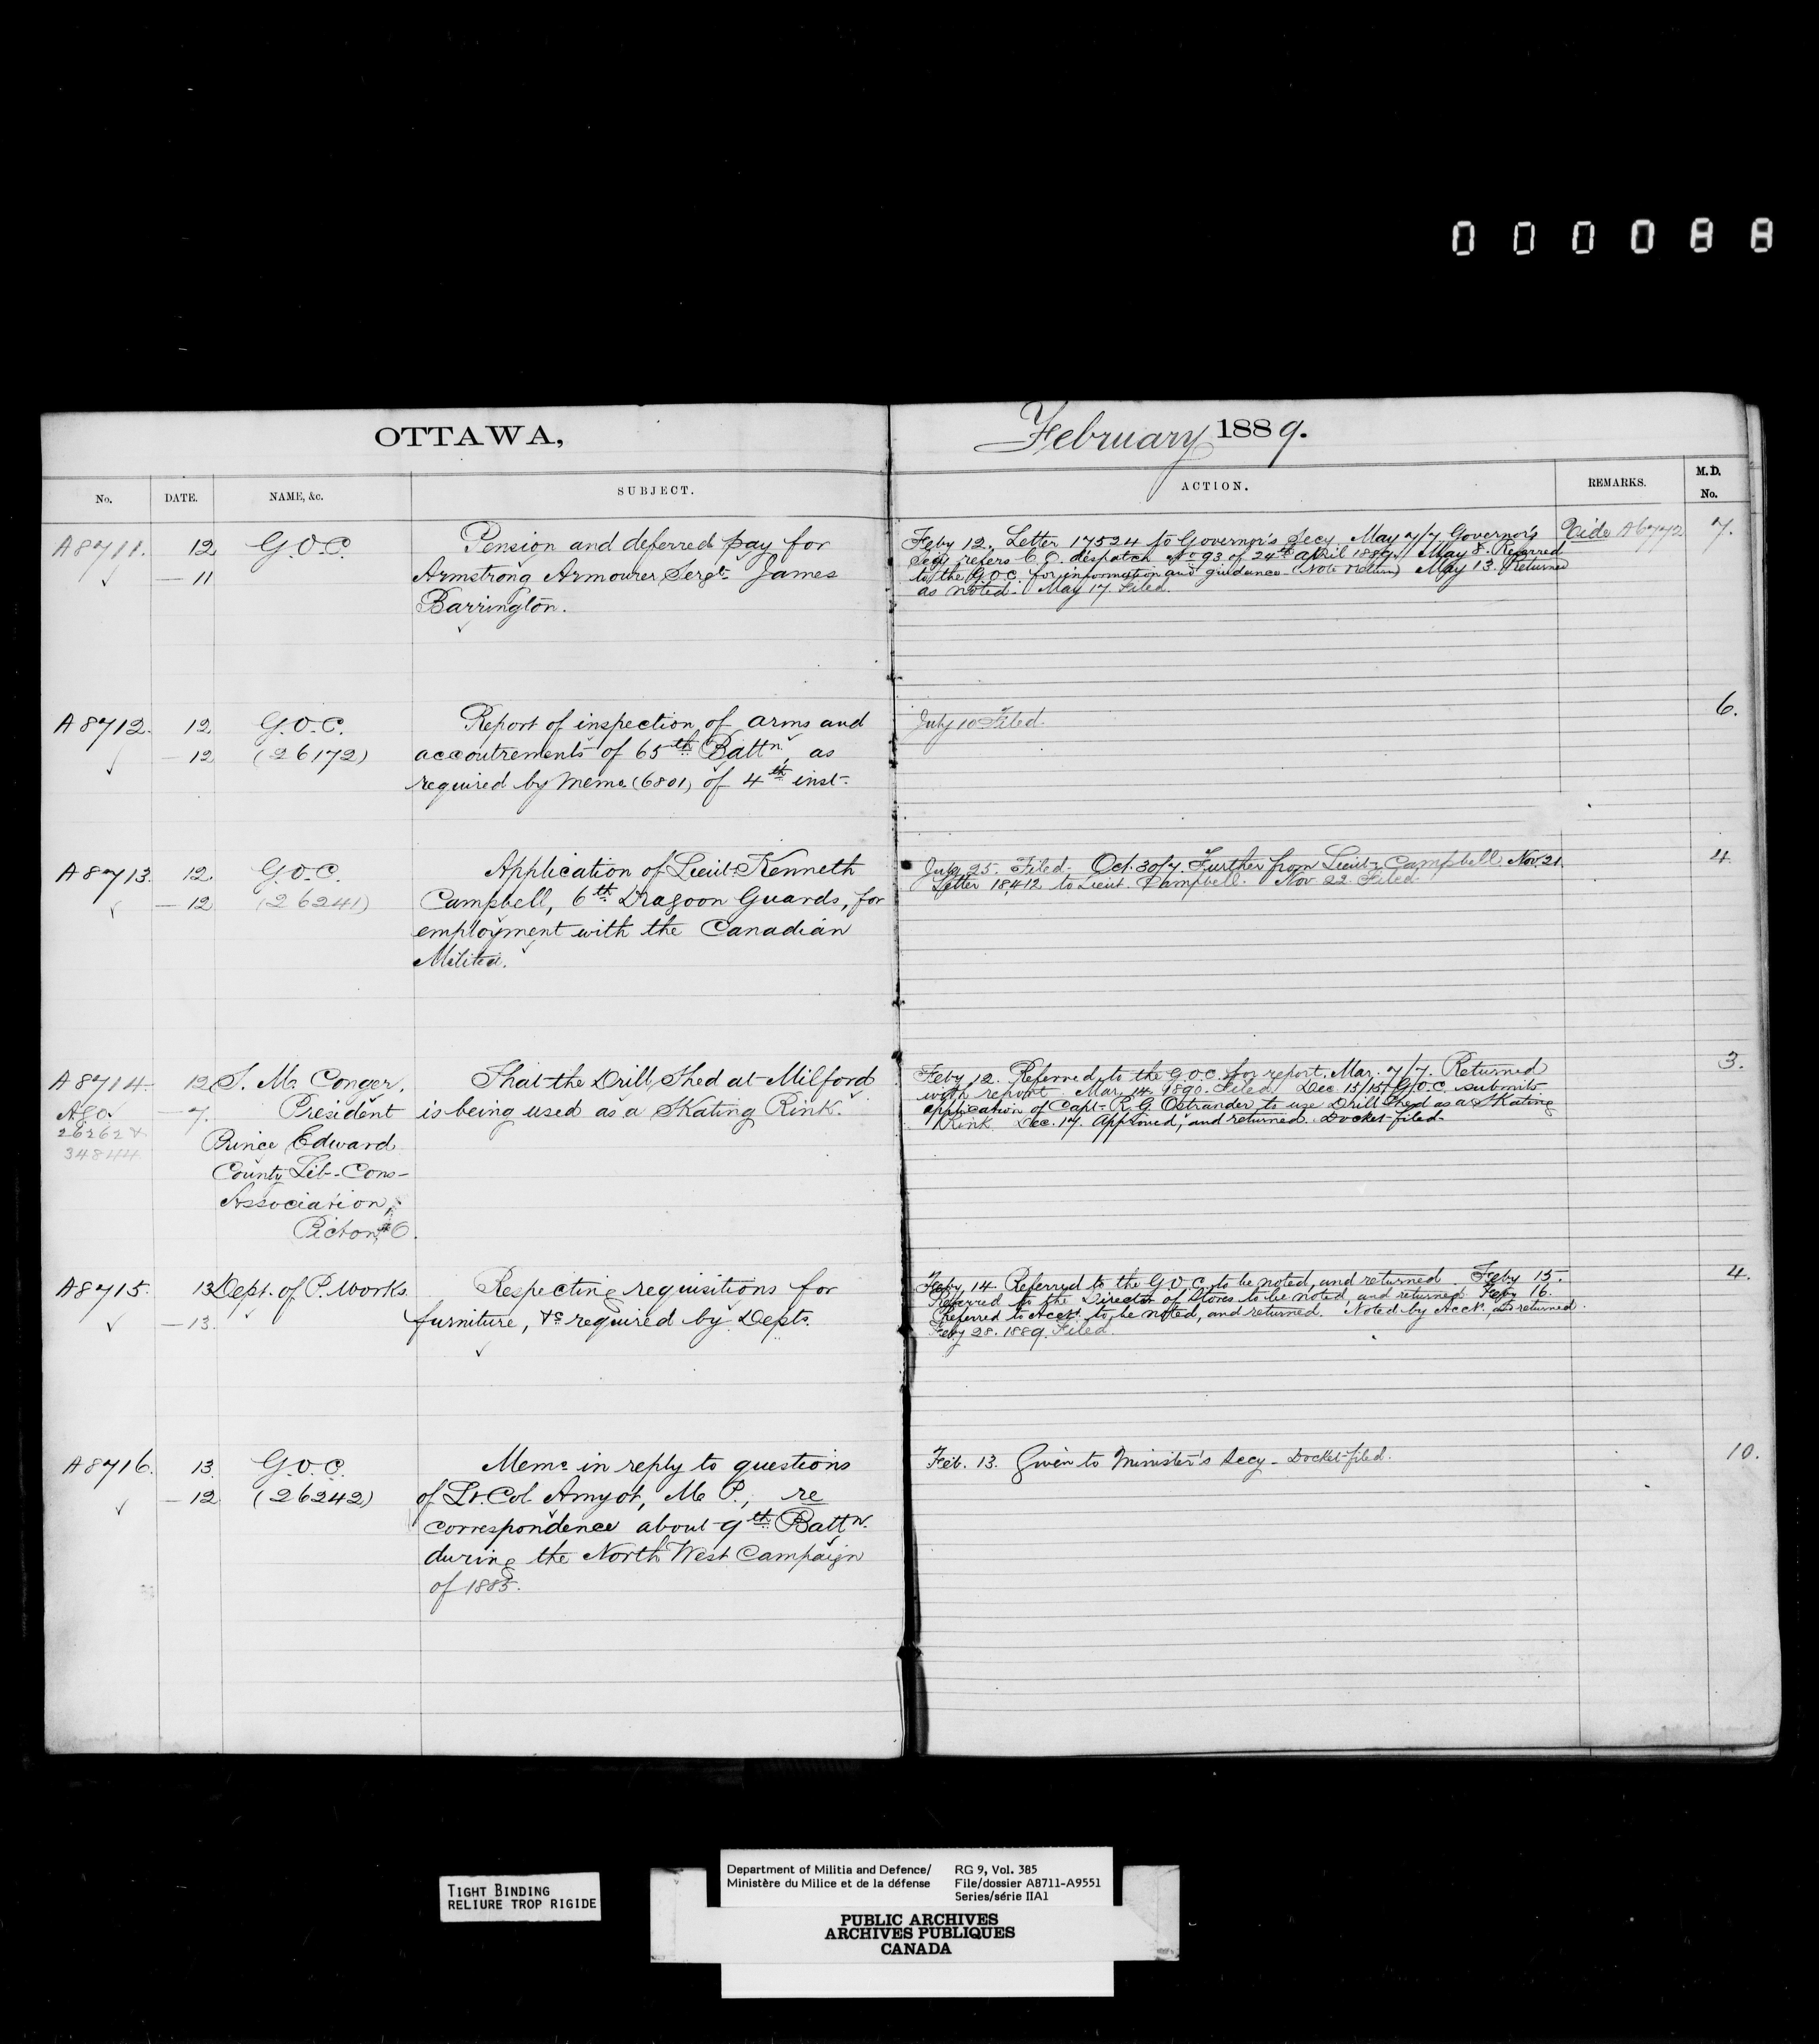 000088
OTTAWA, February 1889.
No. DATE. NAME, &c. SUBJECT. ACTION. REMARKS. M.D. No.
A8711. 12 G.O.C. Pension and deferred pay for
— 11 Armstrong Armourer Sergt. James
Barrington.
Feby 12. Letter 17524 to Governor's Secy. May 7/7 Governor's
Secy refers C.O. despatch No 93 of 24th April 1889. May 8. Referred
to the G.O.C. for information and guidance (Note Return) May 13. Returned
as noted. May 17. Filed.
Vide A6772 7.
A8712. 12 G.O.C. Report of inspection of arms and
— 12 (26172) accoutrements of 65th Battn. as
required by Memo (6801) of 4th inst.
July 10 Filed.
6.
A8713. 12. G.O.C. Application of Lieut. Kenneth
— 12 (26241) Campbell, 6th Dragoon Guards, for
employment with the Canadian
Militia.
July 25. Filed. Oct. 30/7. Further from Lieut. Campbell Nov. 21
Letter 18412 to Lieut. Campbell. Nov 22 Filed.
4.
A8714. 12 S. M. Conger, That the Drill Shed at Milford
AGO — 7. President is being used as a Skating Rink.
26262 & Prince Edward
34844 County Lib-Cons-
Association,
Picton, O.
Feby 12. Referred to the G.O.C. for report. Mar. 7/7. Returned
with report Mar. 14. 1890. Filed. Dec. 15/15 G.O.C. submits
application of Capt. R. G. Ostrander to use Drill Shed as a Skating
Rink Dec. 17. Approved, and returned. Docket filed.
3.
A8715. 13 Dept. of P. Works Respecting requisitions for
— 13. furniture, &c required by Depts.
Feby 14 Referred to the G.O.C. to be noted, and returned. Feby 15.
Referred to the Director of Stores to be noted, and returned. Feby 16.
Referred to Acct. to be noted, and returned. Noted by Acct. and returned.
Feby 28. 1889. Filed.
4.
A8716. 13. G.O.C. Memo in reply to questions
— 12 (26242) of Lt. Col. Amyot, M.P., re
correspondence about 9th Battn.
during the North West Campaign
of 1885.
Feb. 13. Given to Minister's Secy - Docket-filed.
10.
TIGHT BINDING
RELIURE TROP RIGIDE
Department of Militia and Defence/ RG 9, Vol. 385
Ministère du Milice et de la défense File/dossier A8711-A9551
Series/série IIA1
PUBLIC ARCHIVES
ARCHIVES PUBLIQUES
CANADA